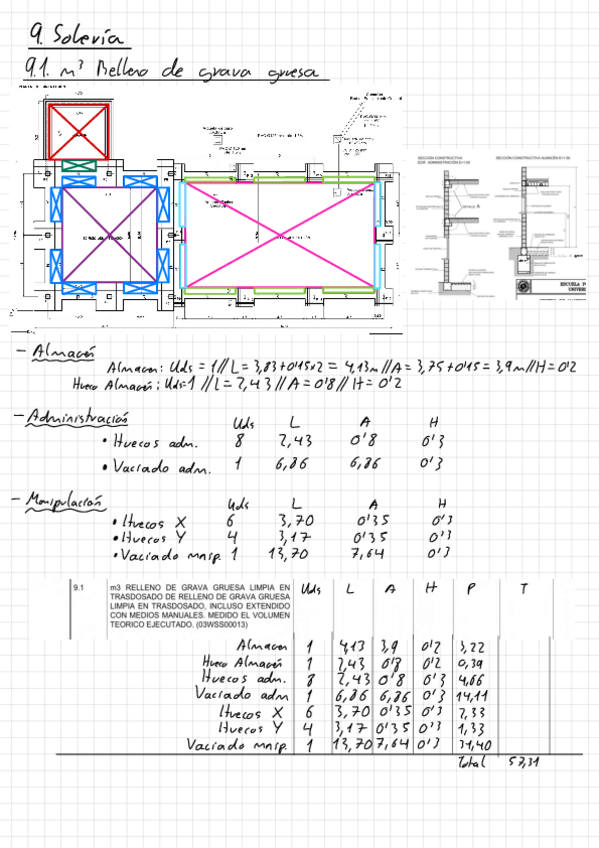 9. Solería
9.1. m³ Relleno de grava gruesa
SECCIÓN CONSTRUCTIVA
EDIF. ADMINISTRACIÓN E=1:50
SECCIÓN CONSTRUCTIVA ALMACÉN E=1:50
ESCUELA P
UNIVERS
- Almacén
Almacen: Uds = 1 // L = 3,83 + 0'15 x 2 = 4,13 m // A = 3,75 + 0'15 = 3,9 m // H = 0'2
Hueco Almacén: Uds=1 // L = 2,43 // A = 0'8 // H = 0'2
- Administración
Uds L A H
• Huecos adm. 8 2,43 0'8 0'3
• Vaciado adm. 1 6,86 6,86 0'3
- Manipulación
Uds L A H
• Huecos X 6 3,70 0'35 0'3
• Huecos Y 4 3,17 0'35 0'3
• Vaciado mnip. 1 13,70 7,64 0'3
9.1 m3 RELLENO DE GRAVA GRUESA LIMPIA EN Uds L A H P T
TRASDOSADO DE RELLENO DE GRAVA GRUESA
LIMPIA EN TRASDOSADO, INCLUSO EXTENDIDO
CON MEDIOS MANUALES. MEDIDO EL VOLUMEN
TEORICO EJECUTADO. (03WSS00013)
Almacen 1 4,13 3,9 0'2 3,22
Hueco Almacén 1 2,43 0'8 0'2 0,39
Huecos adm. 8 2,43 0'8 0'3 4,66
Vaciado adm 1 6,86 6,86 0'3 14,11
Huecos X 6 3,70 0'35 0'3 2,33
Huecos Y 4 3,17 0'35 0'3 1,33
Vaciado mnip. 1 13,70 7,64 0'3 31,40
Total 57,31